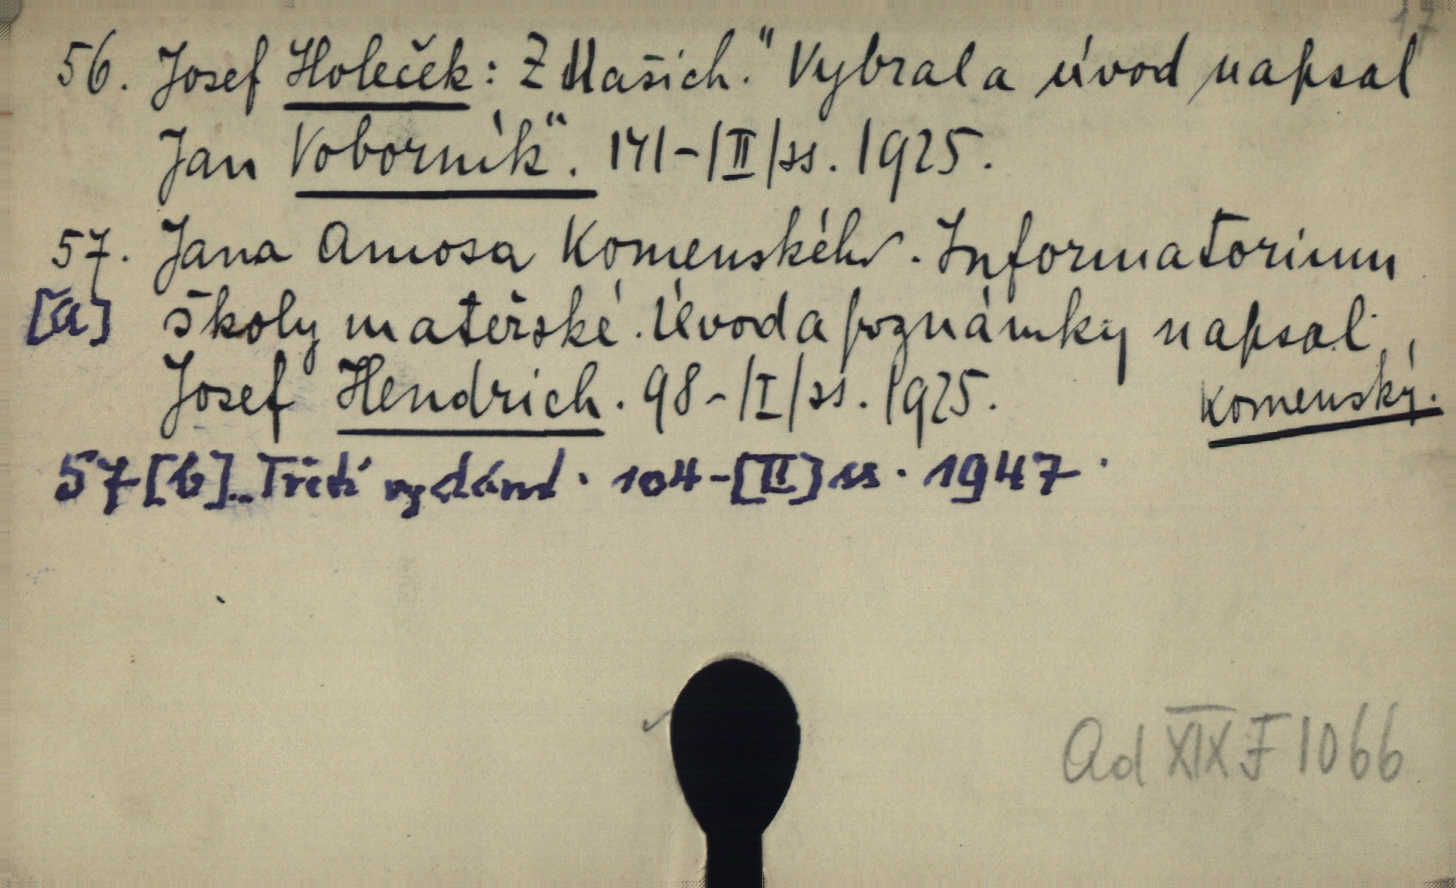 17
56. Josef Holeček: Z Našich." Vybral a úvod napsal
Jan Voborník". 141-|II|ss. 1925.
57. Jana Amosa Komenského. Informatorium
[a] školy mateřské. Úvod a poznámky napsal
Josef Hendrich. 98-|I|ss. 1925. Komenský.
57[b].. Třetí vydání. 104-[II]ss. 1947.
Ad XIX F 1066